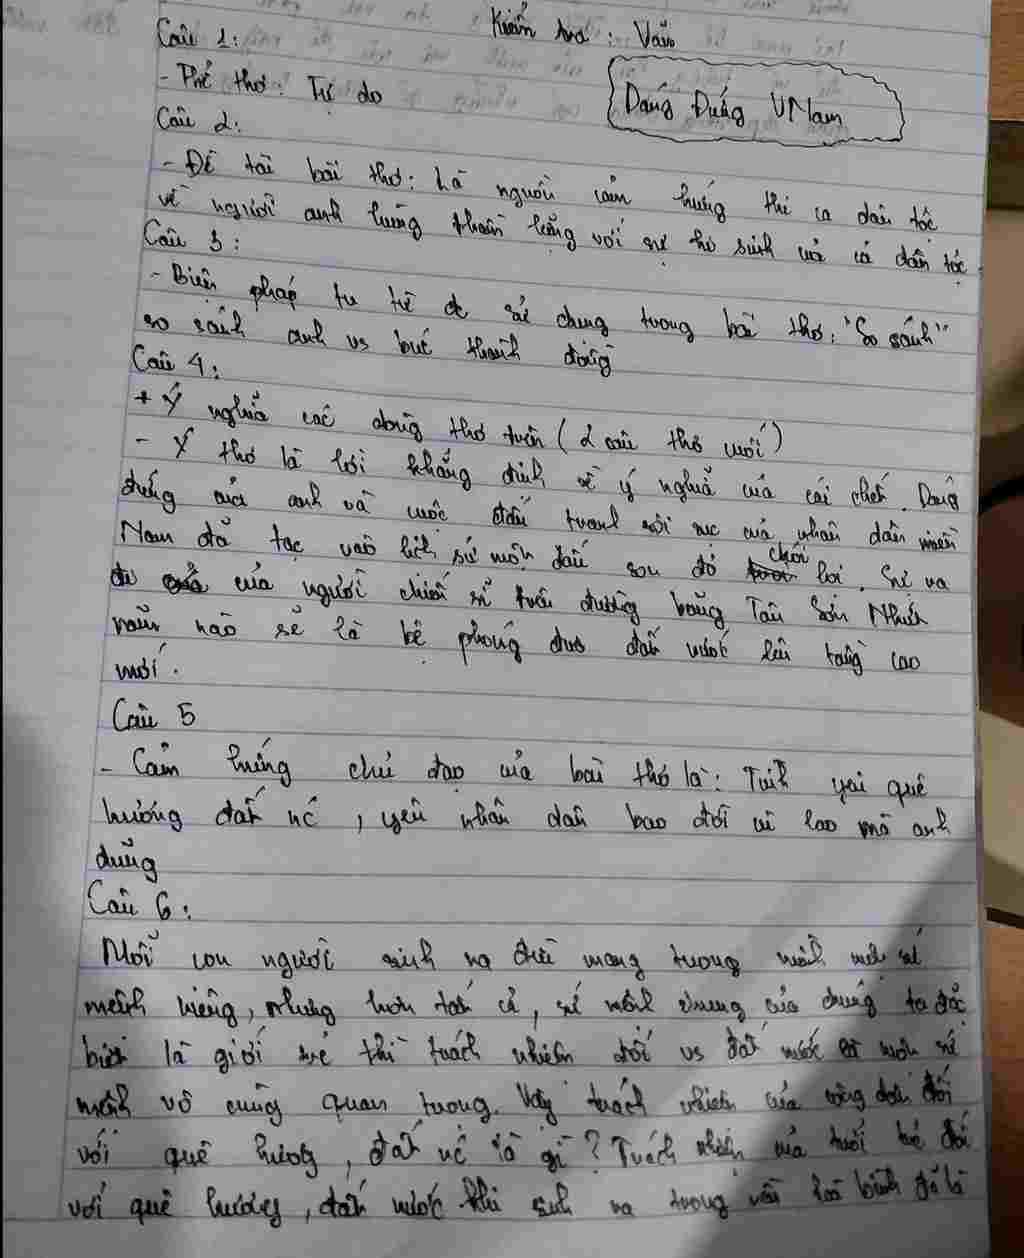 Kiểm tra: Văn
Câu 1:
- Thể thơ: Tự do
Dáng Đứng VNam
Câu 2:
- Đề tài bài thơ: Là nguồn cảm hứng thi ca dân tộc
về người anh hùng thầm lặng với sự hi sinh của cả dân tộc.
Câu 3:
- Biện pháp tu từ đc sử dung trong bài thơ: "So sánh"
so sánh anh vs bức thành đồng
Câu 4:
+ Ý nghĩa các dòng thơ trên (2 câu thơ cuối)
- Ý thơ là lời khẳng định về ý nghĩa của cái chết. Dáng
đứng của anh và cuộc đấu tranh sôi sục của nhân dân miền
Nam đã tạc vào lịch sử một dấu son đỏ chói lọi. Sự ra
đi của người chiến sĩ trên đường băng Tân Sơn Nhứt
năm nào sẽ là bệ phóng đưa đất nước lên tầng cao
mới.
Câu 5
- Cảm hứng chủ đạo của bài thơ là: Tình yêu quê
hương đất nc, yêu nhân dân bao đời vì lao mà anh
dũng
Câu 6:
Mỗi con người sinh ra đều mang trong mình một sứ
mệnh riêng, nhưng hơn tất cả, sứ mệnh chung của chúng ta đặc
biệt là giới trẻ thì trách nhiệm đối vs đất nước là một sứ
mệnh vô cùng quan trọng. Vậy trách nhiệm của công dân đối
với quê hương, đất nc là gì? Trách nhiệm của tuổi trẻ đối
với quê hương, đất nước khi sinh ra trong nền hoà bình đó là